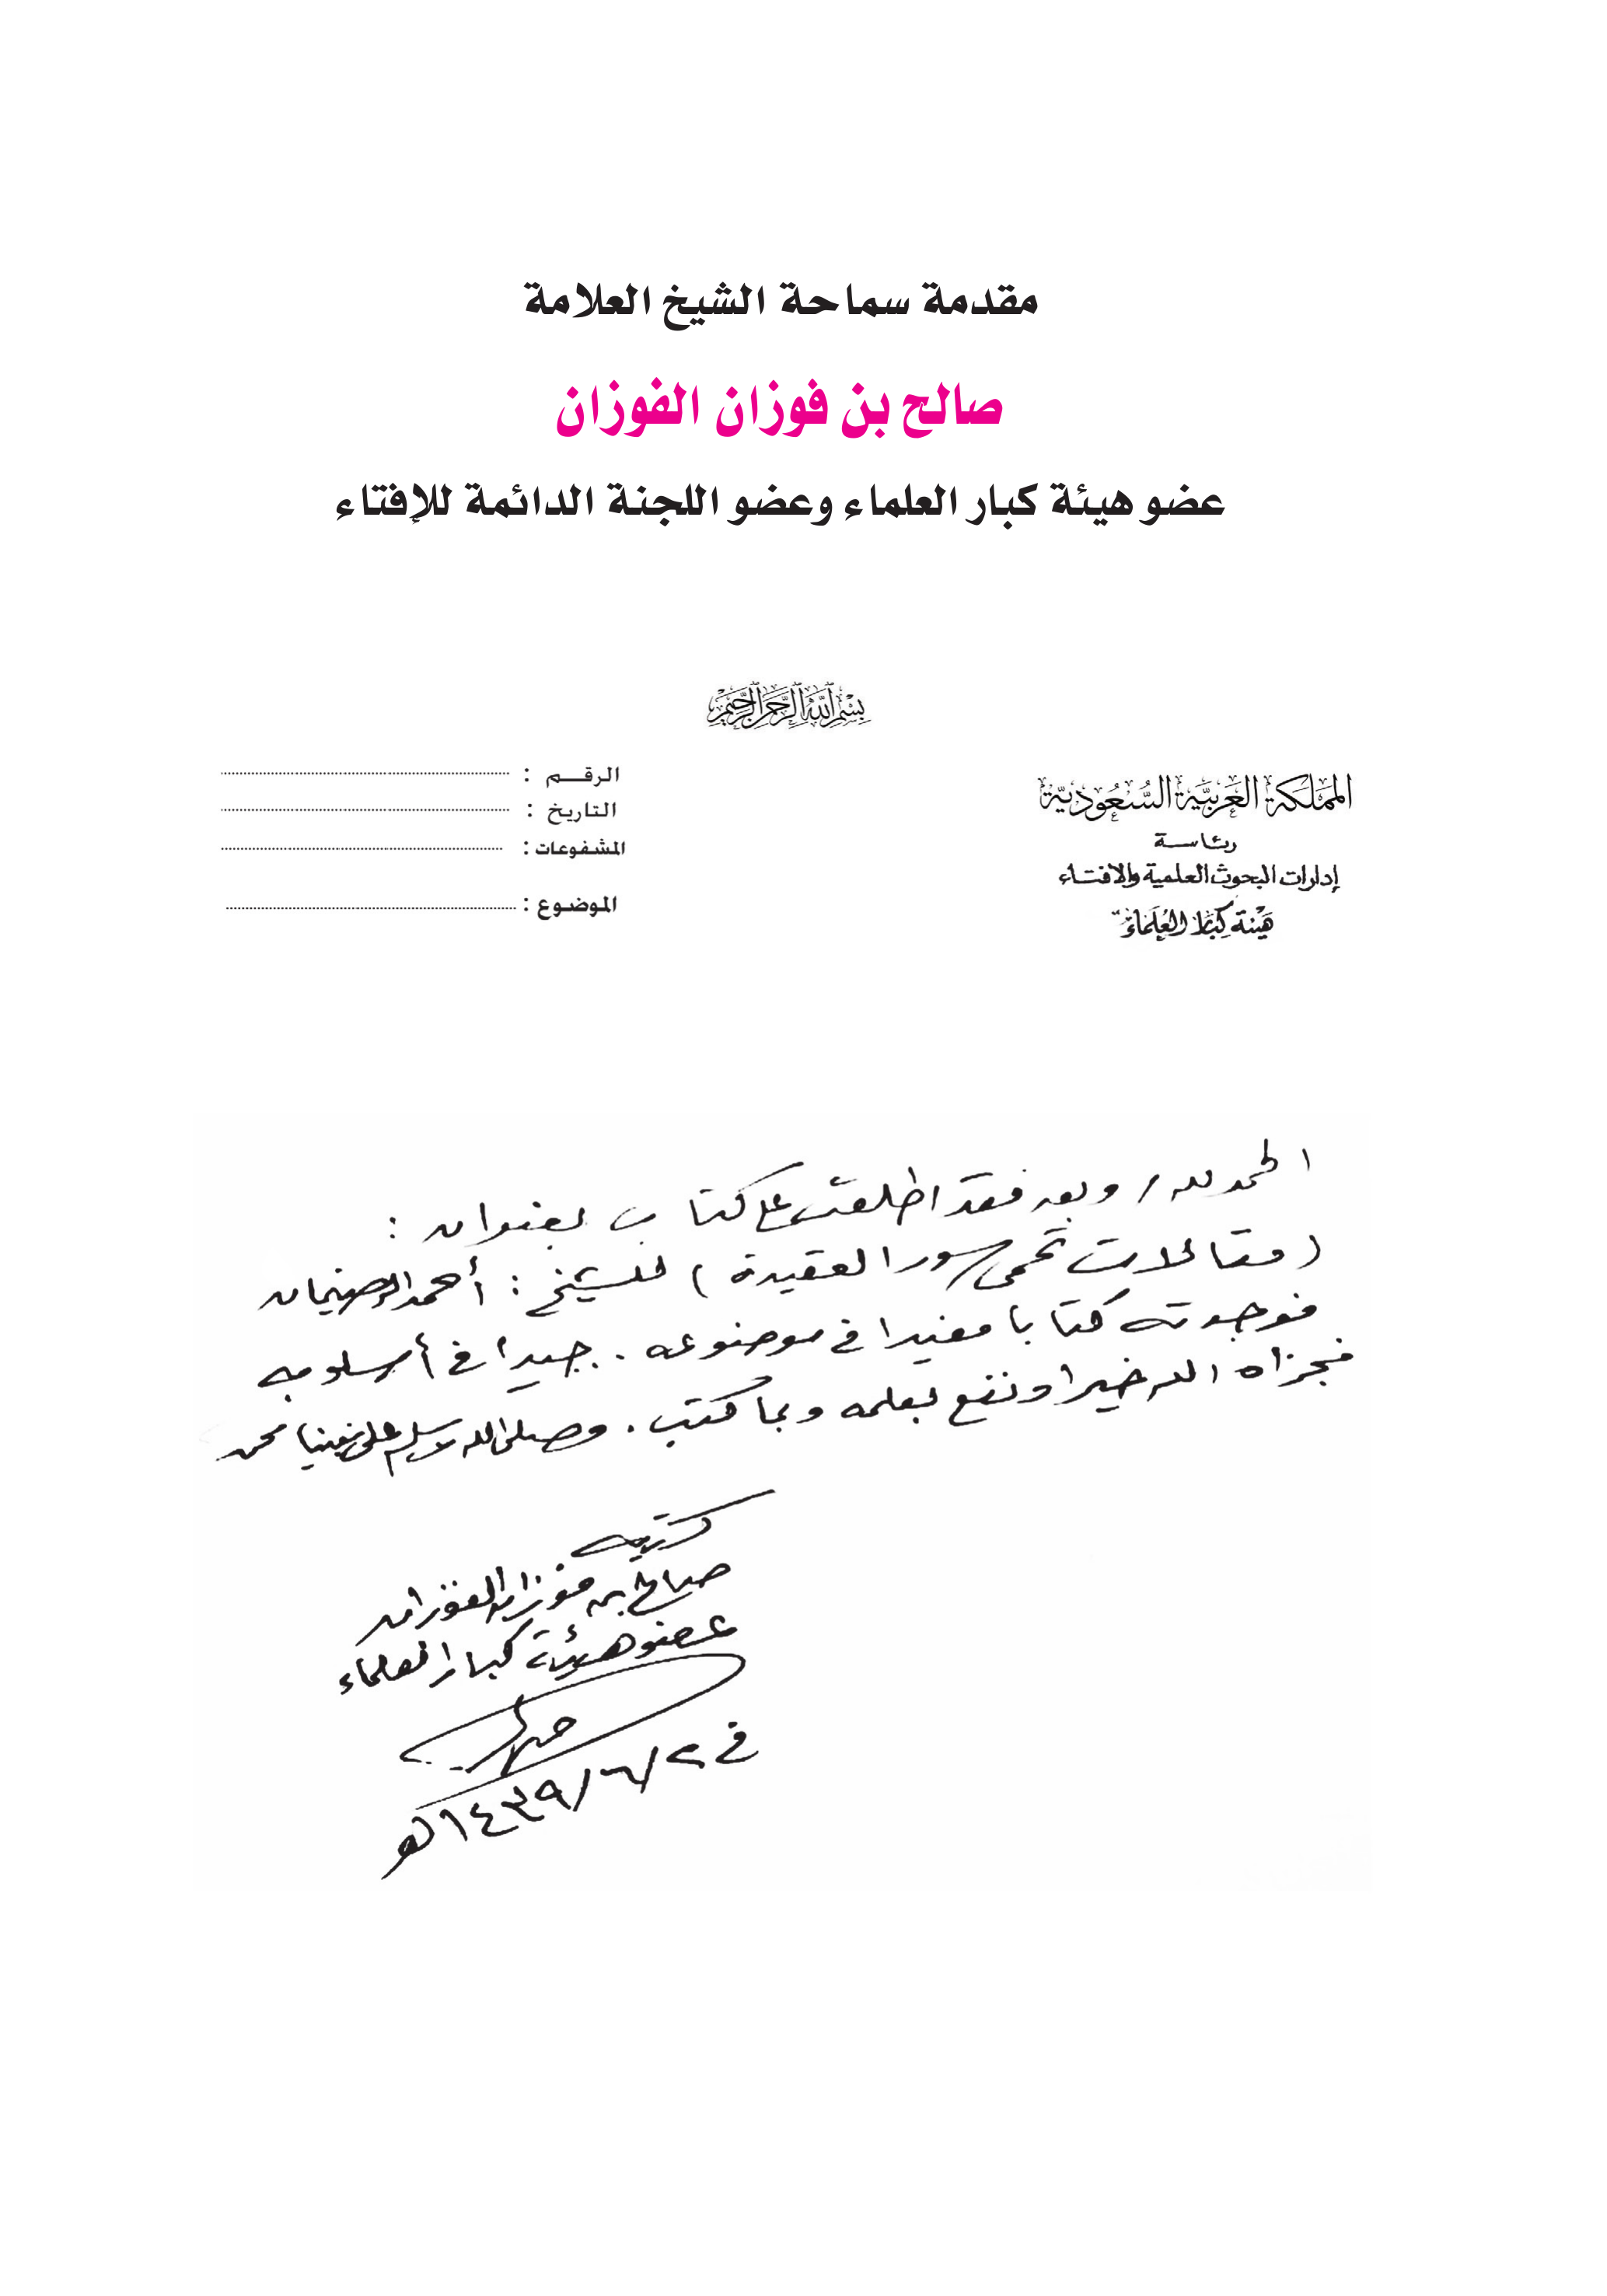 مقدمة سماحة الشيخ العلامة
صالح بن فوزان الفوزان
عضو هيئة كبار العلماء وعضو اللجنة الدائمة للإفتاء
بسم الله الرحمن الرحيم
المملكة العربية السعودية
رئاسة
إدارات البحوث العلمية والافتاء
هيئة كبار العلماء
الرقم :
التاريخ :
المشفوعات :
الموضوع :
الحمد لله / وبعد فقد اطلعت على كتاب بعنوان :
( مقالات تحمي سور العقيدة ) للشيخ : أحمد
فوجدته كتابا مفيدا في موضوعه . جيدا في أسلوبه
فجزاه الله خيرا ونفع بعلمه وبما كتب . وصلى الله وسلم على نبينا محمد
كتبه
صالح بن فوزان الفوزان
عضو هيئة كبار العلماء
في ٢/٦/١٤٣٩هـ